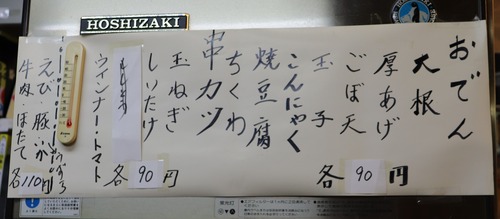 HOSHIZAKI
おでん
大根
厚あげ
ごぼ天
玉子
こんにゃく
焼豆腐
ちくわ
各90円
串カツ
玉ねぎ
しいたけ
ウインナー・トマト
各90円
えび・豚
牛肉・ほたて
各110円